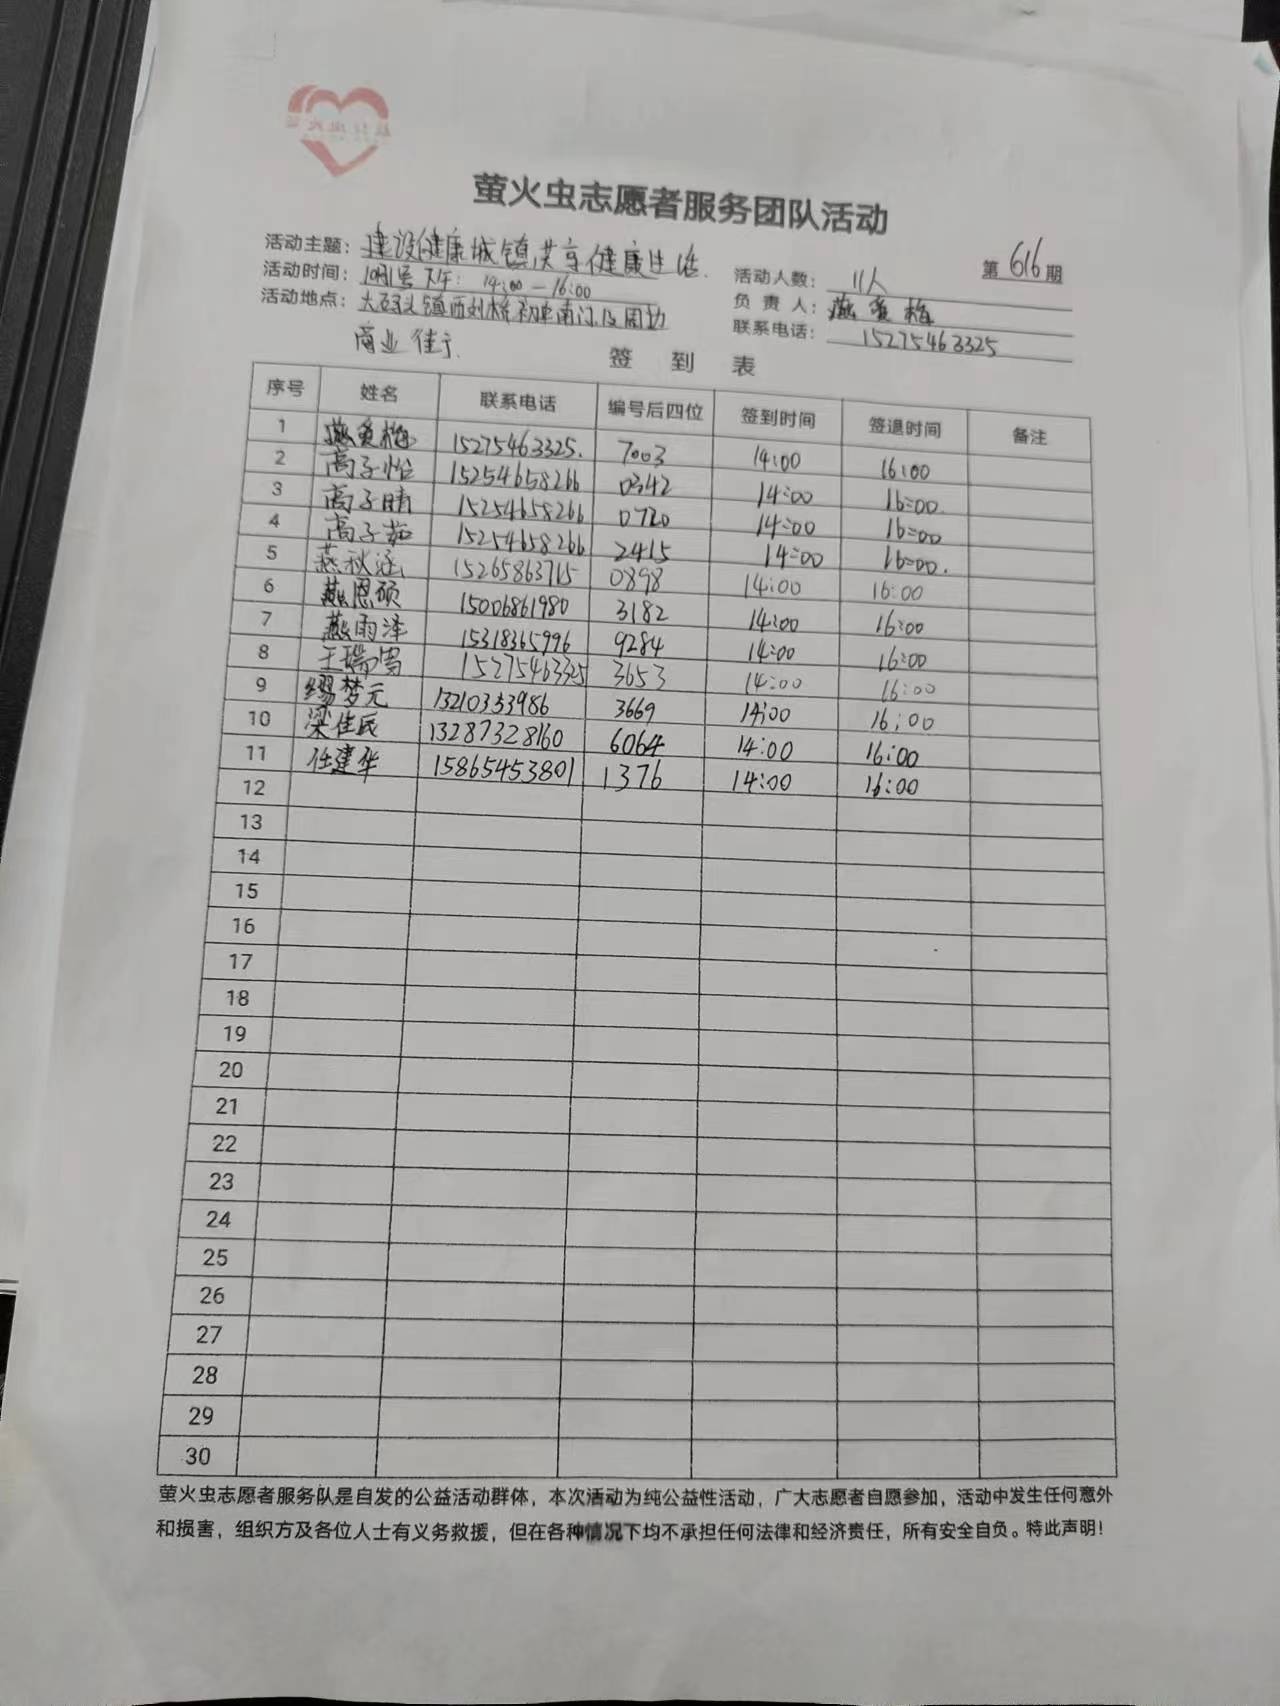 萤火虫志愿者服务团队活动
第616期
活动主题：建设健康城镇,共享健康生活.
活动时间： 下午：14:00—16:00
活动地点：大码头镇西刘桥 南门及周边
商业街
活动人数：11人
负责人：燕爱梅
联系电话：15275463325
签到表
序号 姓名 联系电话 编号后四位 签到时间 签退时间 备注
1 燕爱梅 15275463325. 7003 14:00 16:00
2 高子怡 15254658266 0342 14:00 16:00
3 高子晴 15254658266 0720 14:00 16:00.
4 高子茹 15254658266 2415 14:00 16:00
5 燕秋涵 15265863715 0898 14:00 16:00.
6 燕恩硕 15006861980 3182 14:00 16:00
7 燕雨泽 15318365996 9284 14:00 16:00
8 王瑞雪 15275463325 3653 14:00 16:00
9 缪梦元 13210353986 3669 14:00 16:00
10 梁佳民 13287328160 6064 14:00 16:00
11 任建华 15865453801 1376 14:00 16:00
12
13
14
15
16
17
18
19
20
21
22
23
24
25
26
27
28
29
30
萤火虫志愿者服务队是自发的公益活动群体，本次活动为纯公益性活动，广大志愿者自愿参加，活动中发生任何意外
和损害，组织方及各位人士有义务救援，但在各种情况下均不承担任何法律和经济责任，所有安全自负。特此声明！